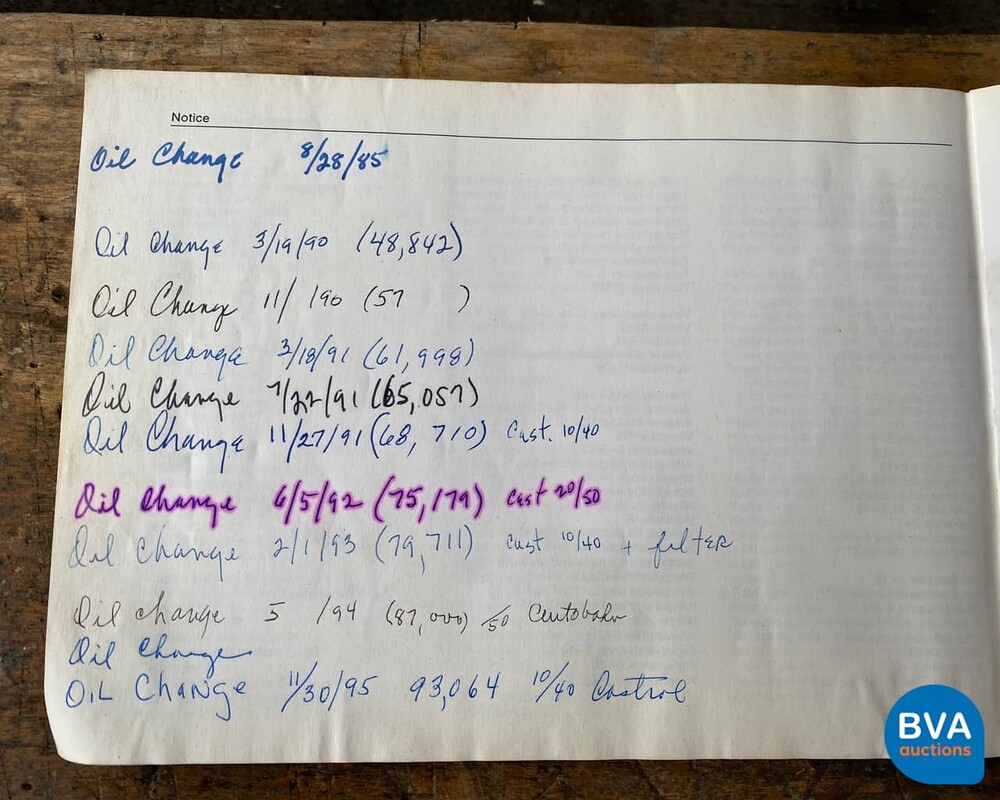 Notice
Oil Change 8/28/85
Oil Change 3/19/90 (48,842)
Oil Change 11/ /90 (57 )
Oil Change 3/18/91 (61,998)
Oil Change 7/22/91 (65,057)
Oil Change 11/27/91 (68,710) Cast. 10/40
Oil Change 6/5/92 (75,179) Cast 20/50
Oil Change 2/1/93 (79,711) Cast 10/40 + filter
Oil change 5 /94 (87,000) /50
Oil Change
OIL CHANGE 11/30/95 93,064 10/40 Castrol
BVA
auctions